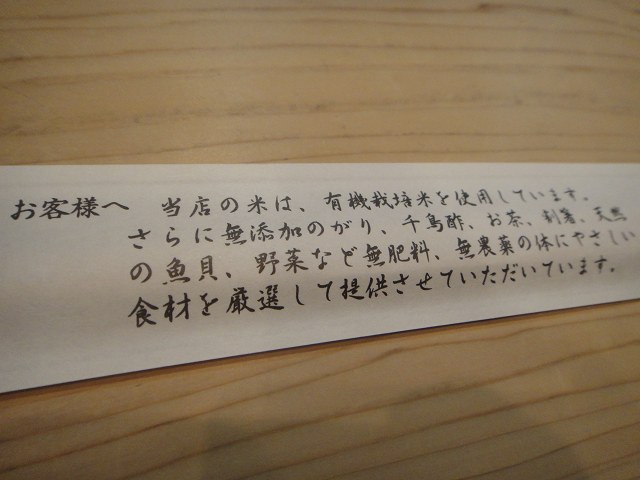 お客様へ 当店の米は、有機栽培米を使用しています。
さらに無添加のがり、千鳥酢、お茶、割箸、天然
の魚貝、野菜など無肥料、無農薬の体にやさしい
食材を厳選して提供させていただいています。